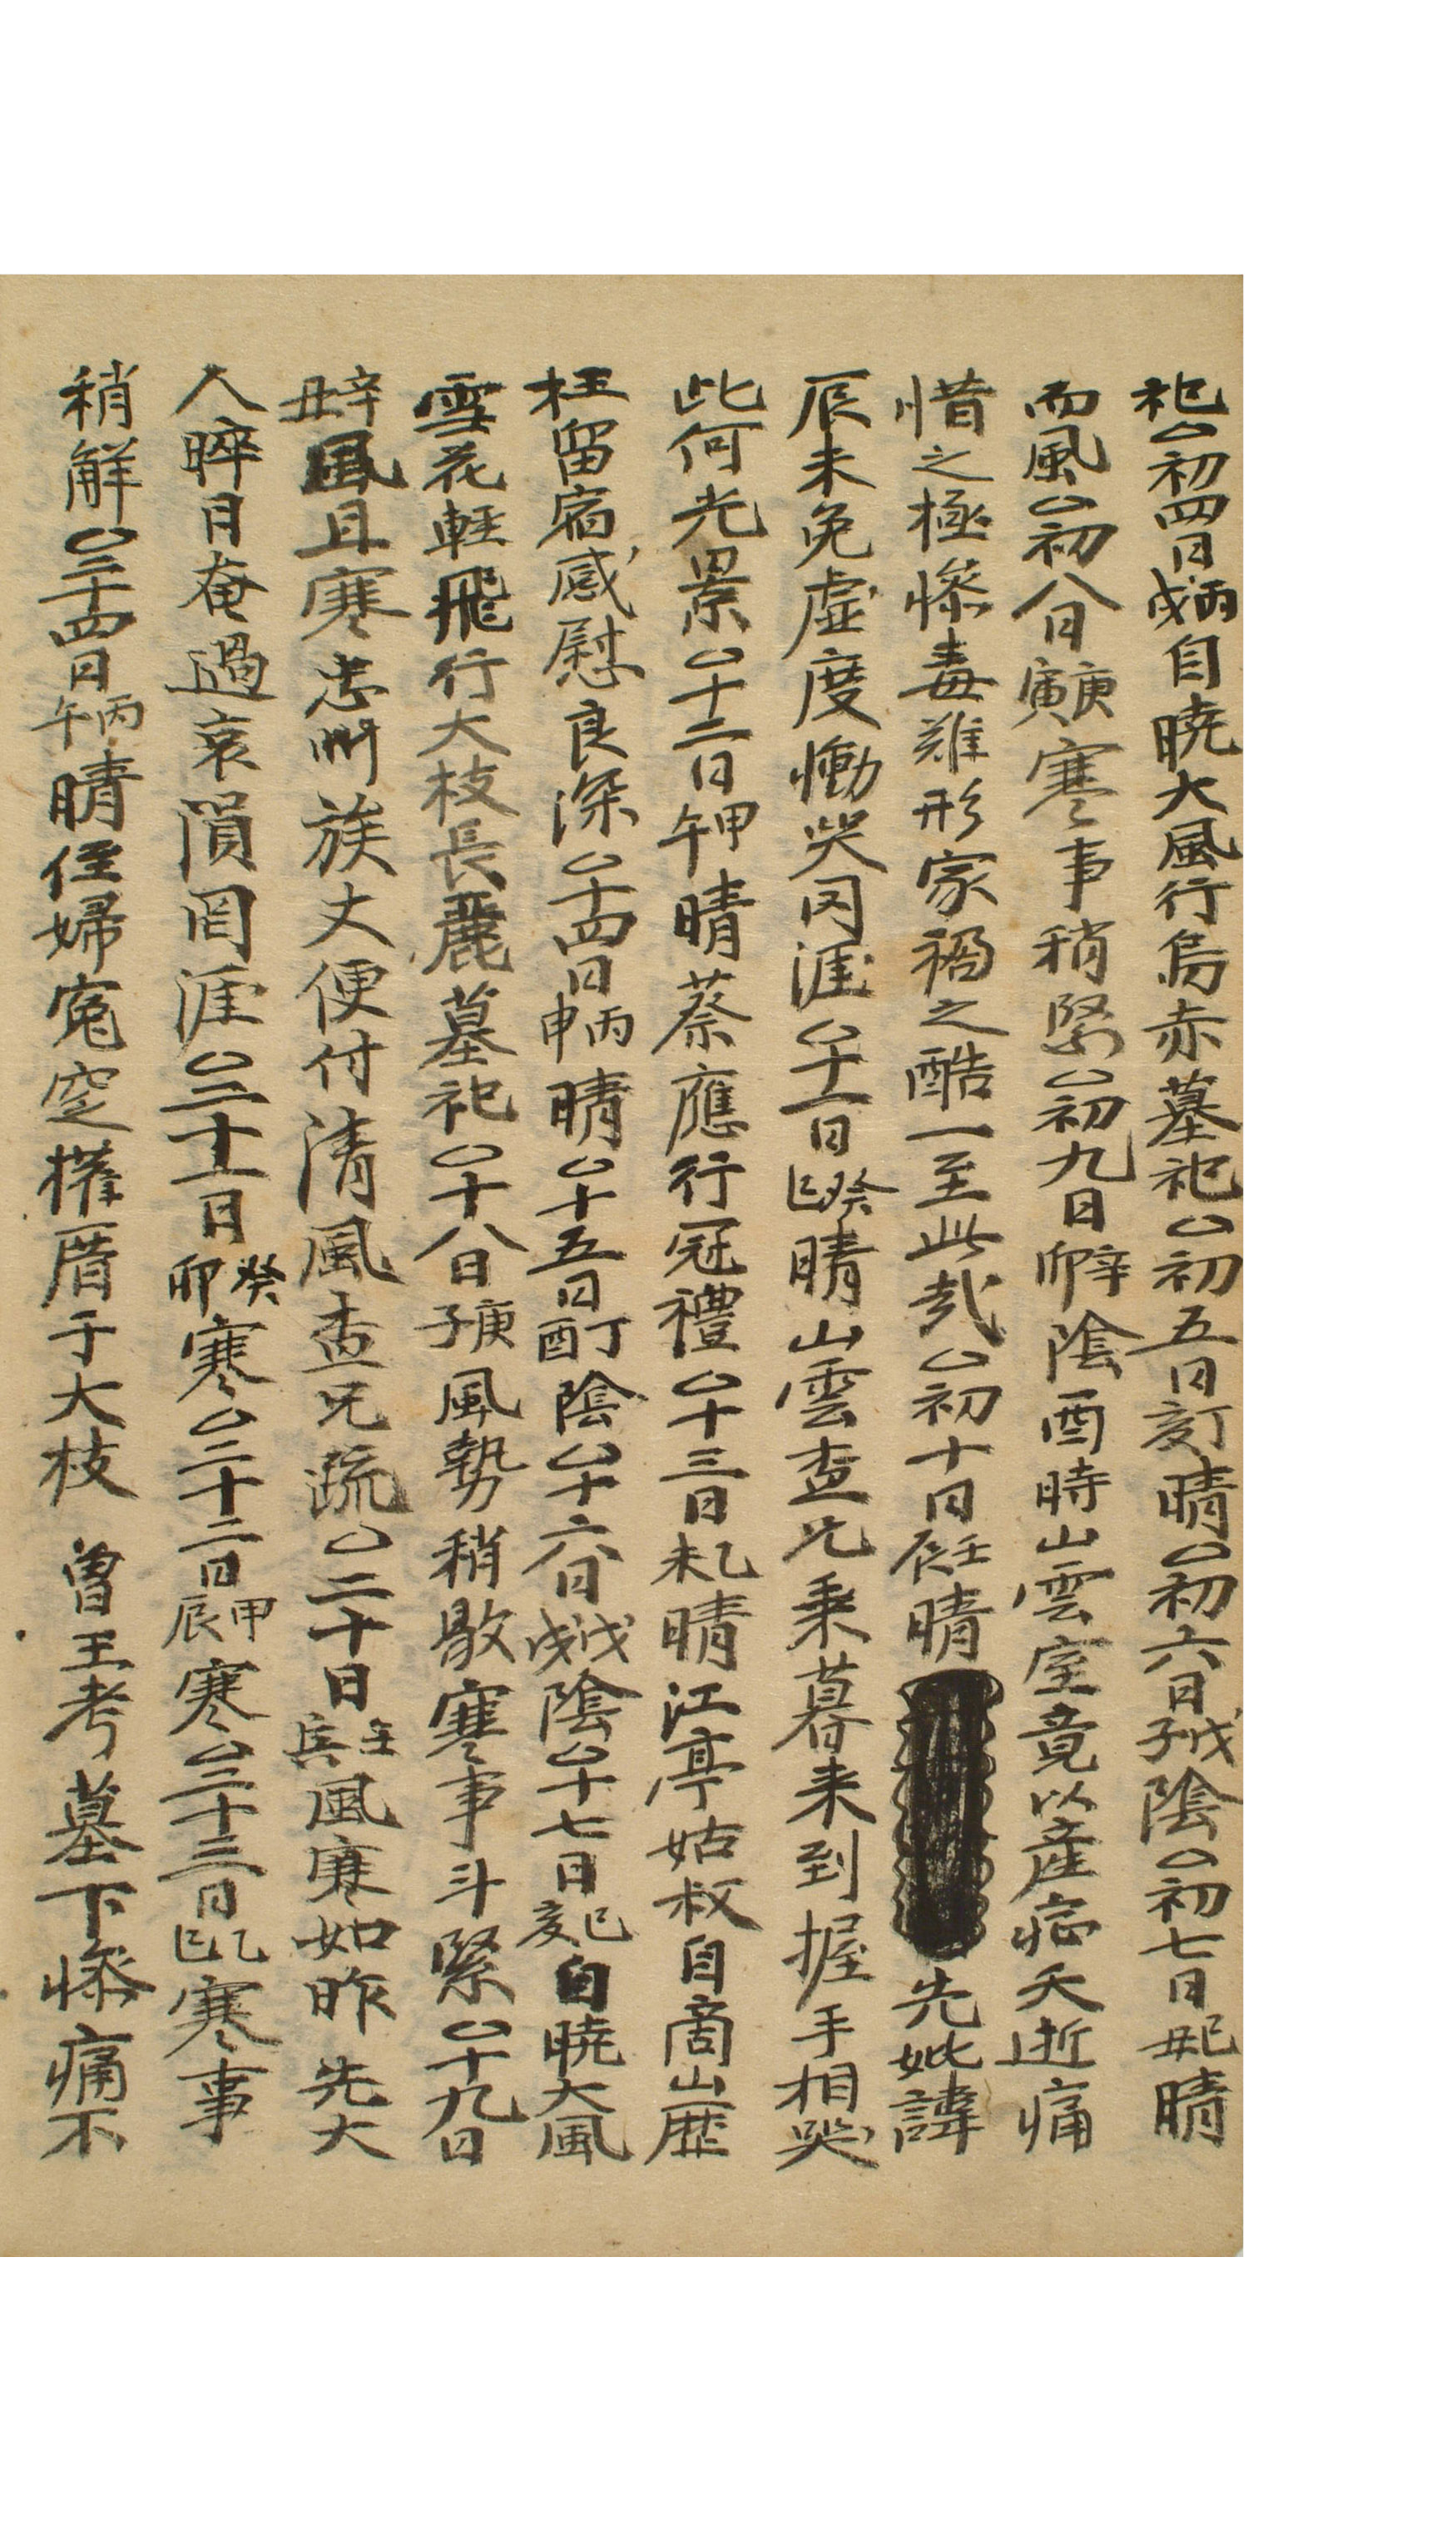 祀○初四日丙戌自曉大風行烏赤墓祀○初五日丁亥晴○初六日戊子陰○初七日己丑晴
而風○初八日庚寅寒事稍緊○初九日辛卯陰酉時山雲室竟以産病夭逝痛
惜之極慘毒難形家禍之酷一至此哉○初十日壬辰晴 先妣諱
辰未免虛度慟哭罔涯○十一日癸巳晴山雲查兄乘暮來到握手相哭
此何光景○十二日甲午晴蔡應行冠禮○十三日乙未晴江亭姑叔自商山歷
枉留宿感慰良深○十四日丙申晴○十五日丁酉陰○十六日戊戌陰○十七日己亥自曉大風
雪花輕飛行大枝長麗墓祀○十八日庚子風勢稍歇寒事斗緊○十九日
辛丑風且寒忠州族丈便付清風查兄疏○二十日壬寅風寒如昨 先大
人晬月奄過哀隕罔涯○二十一日癸卯寒○二十二日甲辰寒○二十三日乙巳寒事
稍解○二十四日丙午晴侄婦寃窆權厝于大枝 曾王考墓下慘痛不